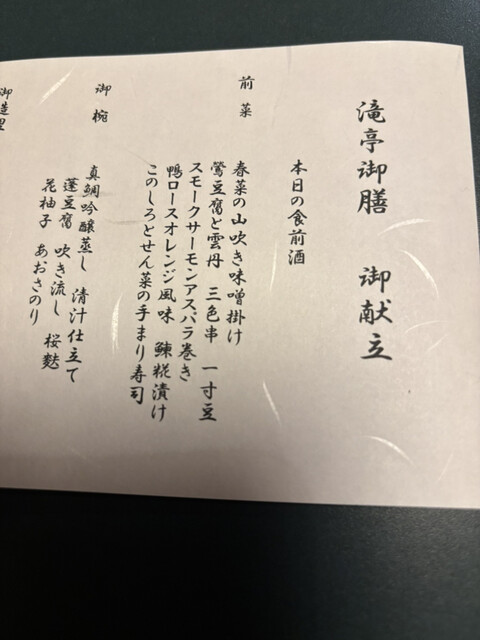 滝亭御膳　御献立
本日の食前酒
前菜
春菜の山吹き味噌掛け
鶯豆腐と雲丹　三色串　一寸豆
スモークサーモンアスパラ巻き
鴨ロースオレンジ風味　鰊糀漬け
このしろとせん菜の手まり寿司
御椀
真鯛吟醸蒸し　清汁仕立て
蓬豆腐　吹き流し　桜麩
花柚子　あおさのり
御造里